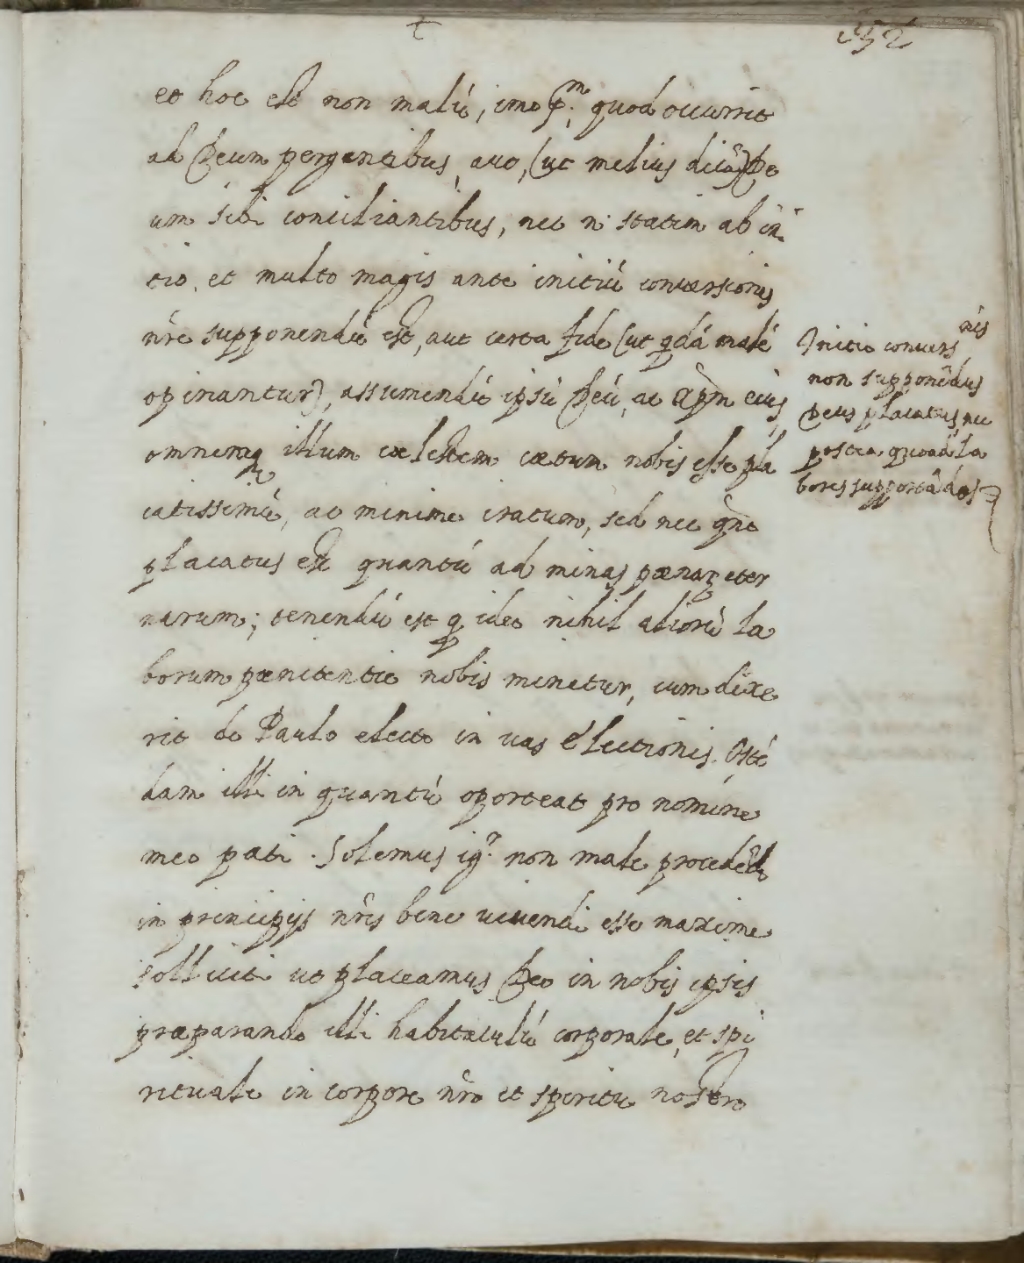 152
et hoc est non malũ, imo pm. quod occurrit
ad Deum pergentibus, aut, (ut melius dicã) De
um sibi conciliantibus, nec n. statim ab ini
tio, et multo magis ante initiũ conversionis
nr̃e supponendũ est, aut certa fide (ut qdã malè
opinantur), assumendũ ipsũ Deũ, ac Xpm eius,
omnemq illum cœlestem cœtum nobis esse pla
catissimũ, ac minime iratum, sed nec qñ
placatus est quantũ ad minas pœnaꝝ eter
narum; tenendũ est q ideo nihil aliorũ la
borum pœnitentie nobis minetur, cum dixe
rit de Paulo electo in vas electionis. Ostẽ
dam illi in quantũ oporteat pro nomine
meo pati. Solemus igr. non male procedẽdi
in principijs nr̃is bene vivendi esse maxime
solliciti ut placeamus Deo in nobis ipsis
præparando illi habitaculũ corporale, et spi
rituale in corpore nr̃o et spiritu nostro
Initio convers
nis
non supponẽdus
Deus placatus, nec
postea quoad la
bores supportãdos